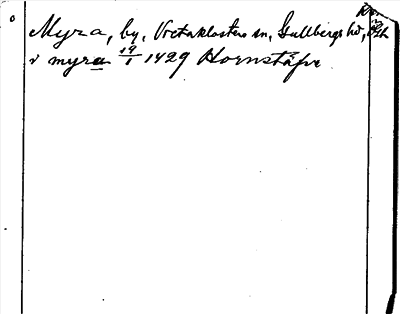 Myra, by, Vretaklosters sn, Gullbergs hd, Ög
i myra 19/1 1429 Hornstäfve